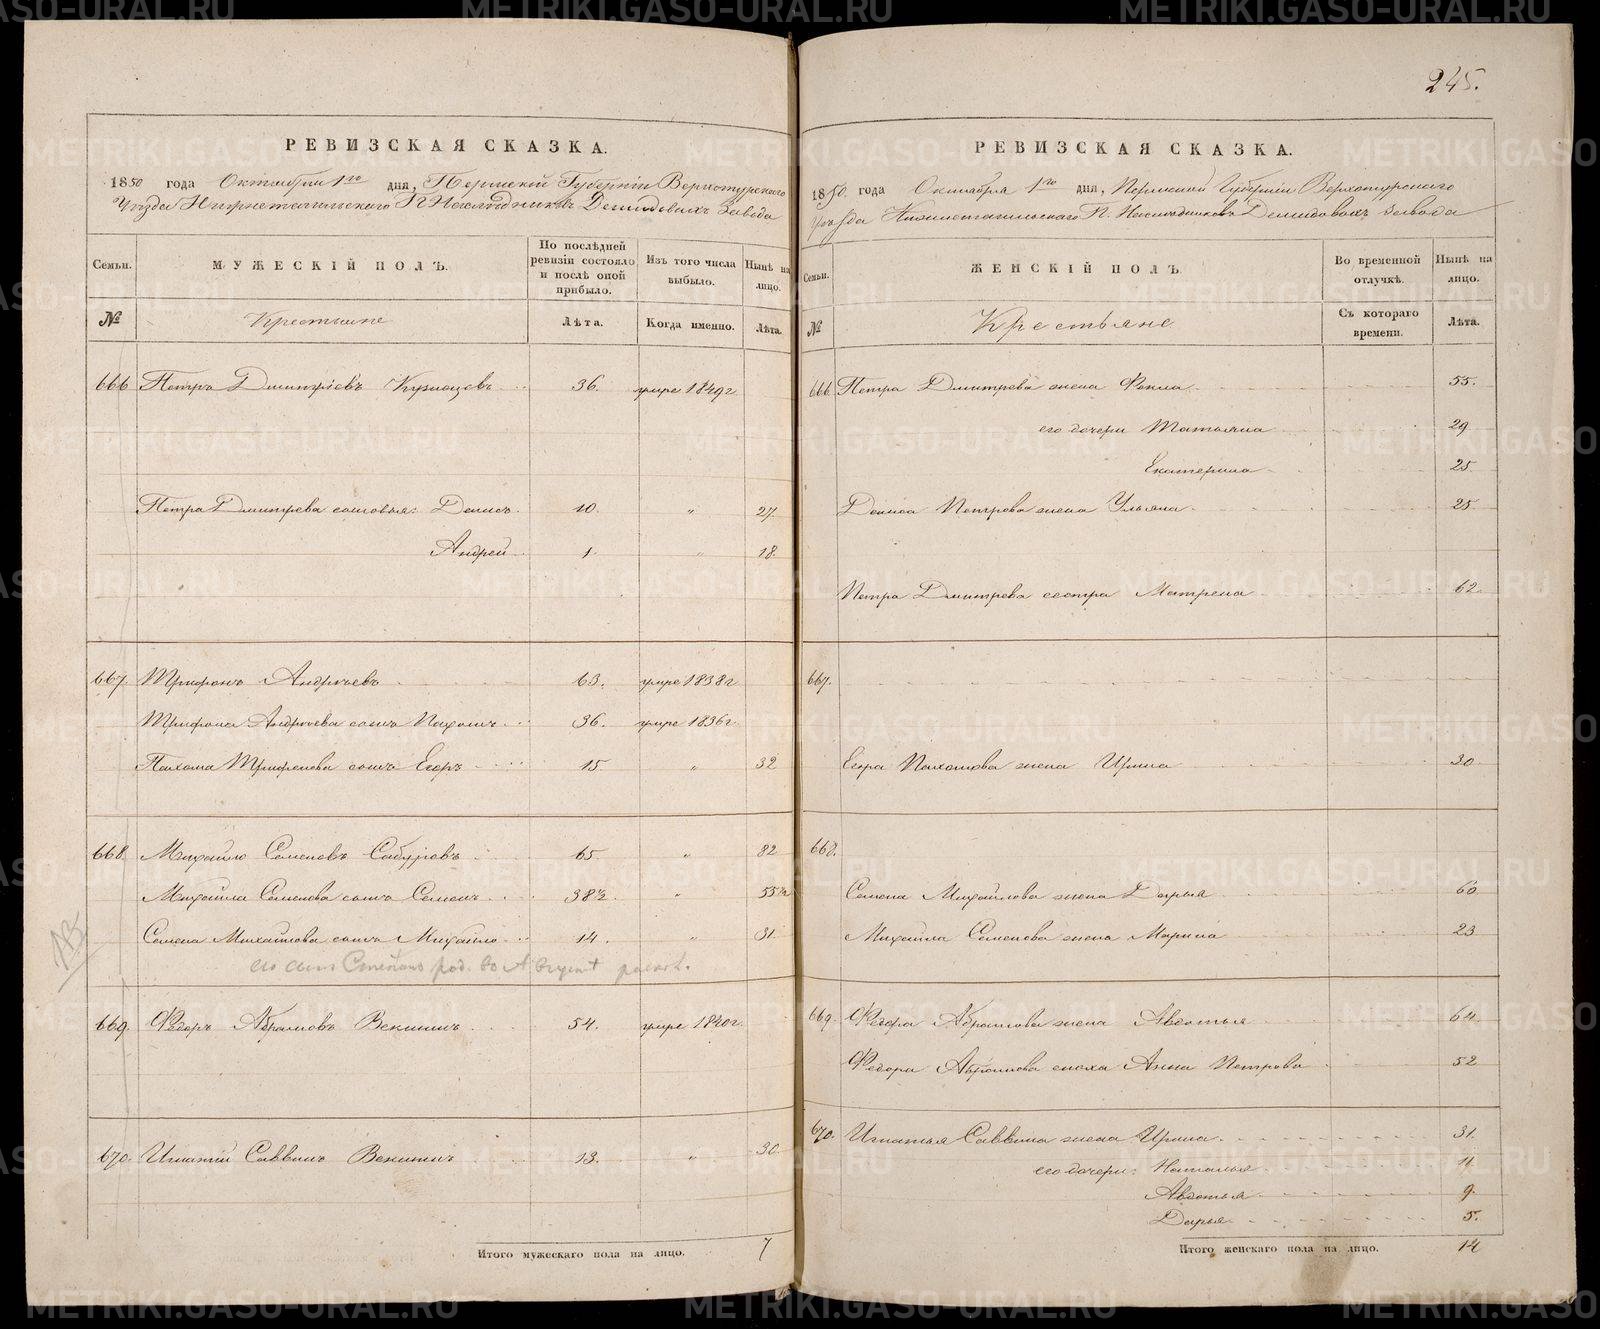 245.
РЕВИЗСКАЯ СКАЗКА.
1850 года Октября 1го дня, Пермской Губернiи Верхотурскаго
Уѣзда Нижнетагильскаго П. Наслѣдниковъ Демидовыхъ Завода
Семьи. МУЖЕСКІЙ ПОЛЪ. По послѣдней ревизіи состояло и послѣ оной прибыло. Изъ того числа выбыло. Нынѣ на лицо.
№ Крестьяне Лѣта. Когда именно. Лѣта.
666 Петръ Дмитріевъ Кузнецовъ 36. умре 1849г
Петра Дмитрева сыновья: Денисъ 10. " 27.
Андрей 1. " 18.
667. Трифонъ Андреевъ 63. умре 1838г
Трифона Андреева сынъ Пахомъ 36. умре 1836г.
Пахома Трифонова сынъ Егоръ 15 " 32
668. Михайло Семеновъ Сабуровъ 65. " 82
Михайла Семенова сынъ Семенъ 38½. " 55½
Семена Михайлова сынъ Михайло 14. " 31.
его сынъ род. во
669. Федоръ Абрамовъ Векшинъ 54. умре 1840г.
670. Игнатій Саввинъ Векшинъ 13. " 30.
Итого мужескаго пола на лицо. 7
РЕВИЗСКАЯ СКАЗКА.
1850 года Октября 1го дня, Пермской Губерніи Верхотурскаго
Уѣзда Нижнетагильскаго П. Наслѣдниковъ Демидовыхъ завода
Семьи. ЖЕНСКІЙ ПОЛЪ Во временной отлучкѣ. Нынѣ на лицо.
№ Крестьяне Съ котораго времени. Лѣта.
666. Петра Дмитрева жена Фекла 55.
его дочери Татьяна 29
Екатерина 25.
Дениса Петрова жена Ульяна 25
Петра Дмитрева сестра Матрена 62.
667.
Егора Пахомова жена Ирина 30
668.
Семена Михайлова жена Дарья 60
Михайла Семенова жена Марина 23
669. Федора Абрамова жена Авдотья 64.
Федора Абрамова сноха Анна Петрова 52
670. Игнатья Саввина жена Ирина. 31.
его дочери: Наталья 11
Авдотья 9.
Дарья 5.
Итого женскаго пола на лицо. 14
METRIKI.GASO-URAL.RU